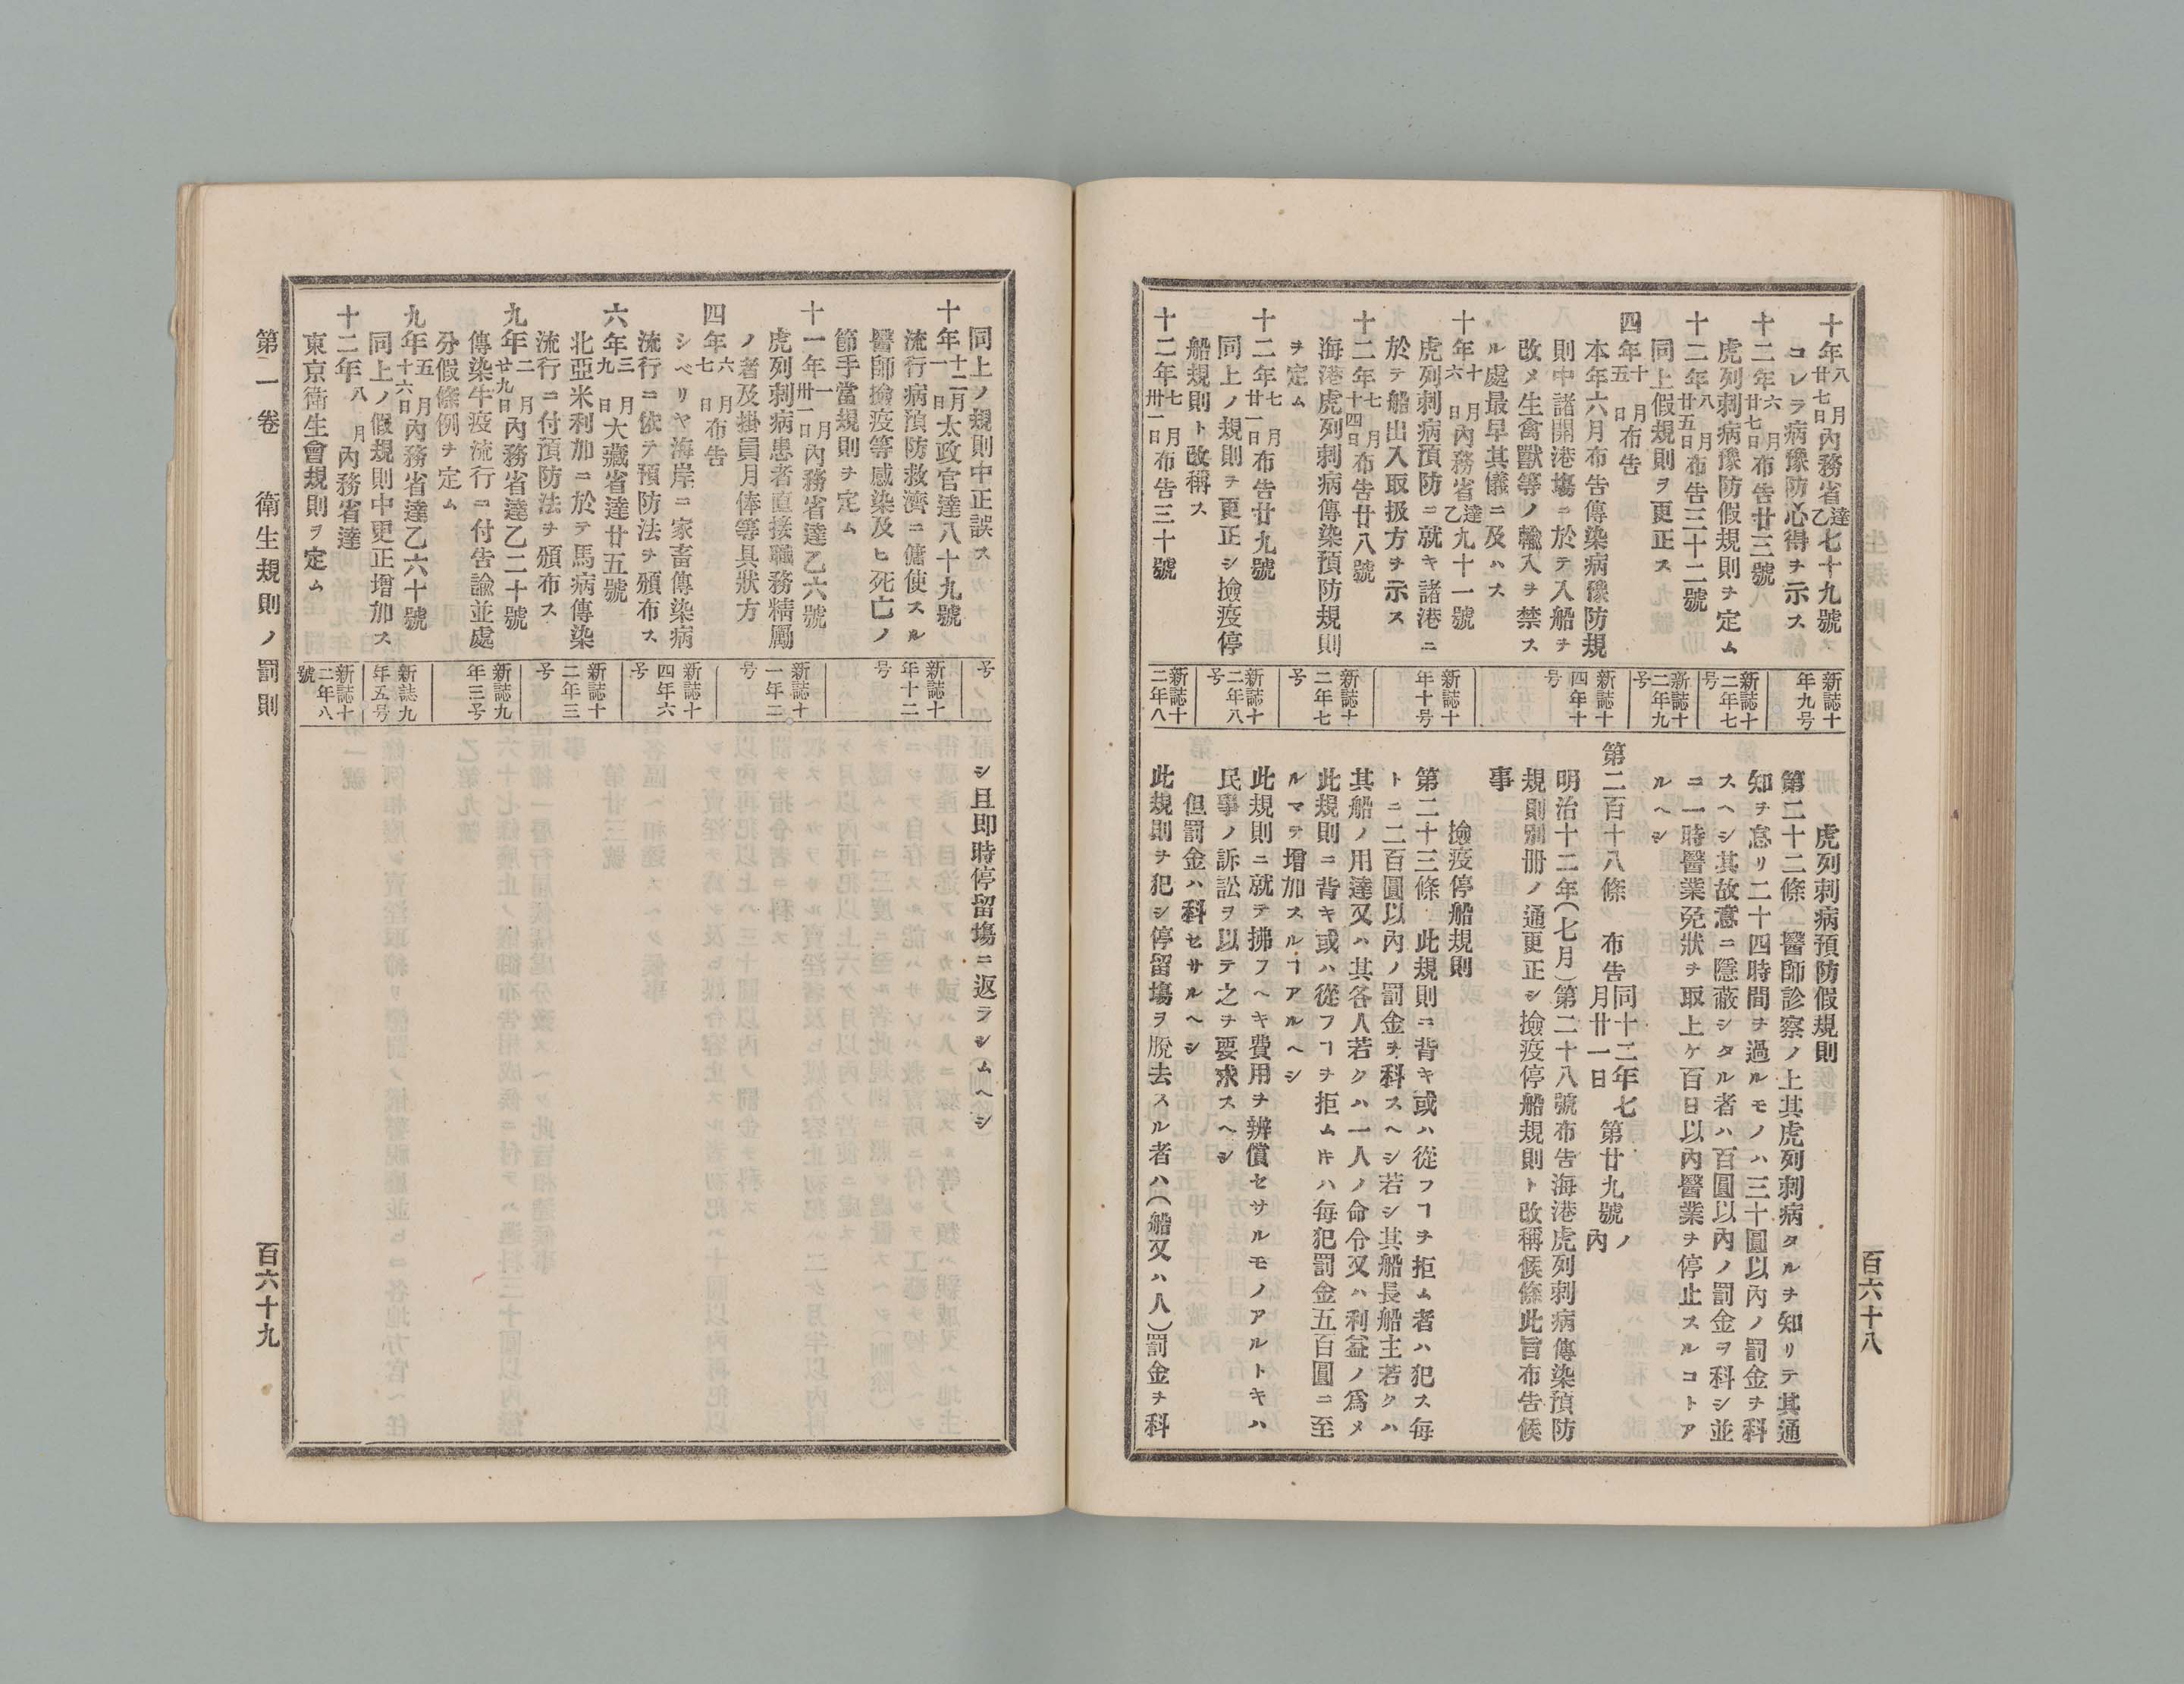 百六十八
十年八月廿七日內務省達乙七十九號
コレラ病豫防心得ヲ示ス
十二年六月廿七日布告廿三號
虎列刺病豫防假規則ヲ定ム
十二年八月廿五日布告三十二號
同上假規則ヲ更正ス
四年十月五日布告
本年六月布告傳染病豫防規
則中諸開港場ニ於テ入船ヲ
改メ生禽獸等ノ輸入ヲ禁ス
ル處最早其儀ニ及ハス
十年十月六日內務省達乙九十一號
虎列刺病預防ニ就キ諸港ニ
於テ船出入取扱方ヲ示ス
十二年七月十四日布告廿八號
海港虎列刺病傳染預防規則
ヲ定ム
十二年七月廿一日布告廿九號
同上ノ規則ヲ更正シ撿疫停
船規則ト改稱ス
十二年七月卅一日布告三十號
新誌十年九号
新誌十二年七号
新誌十二年九号
新誌十四年十号
新誌十年十号
新誌十二年七号
新誌十二年八号
新誌十二年八
虎列刺病預防假規則
第二十二條(醫師診察ノ上其虎列刺病タルヲ知リテ其通
知ヲ怠リ二十四時間ヲ過ルモノハ三十圓以內ノ罰金ヲ科
スヘシ其故意ニ隱蔽シタル者ハ百圓以內ノ罰金ヲ科シ並
ニ一時醫業免狀ヲ取上ケ百日以內醫業ヲ停止スルコトア
ルヘシ
第二百十八條 布告同十二年七月廿一日 第廿九號ノ內
明治十二年(七月)第二十八號布告海港虎列刺病傳染預防
規則別冊ノ通更正シ撿疫停船規則ト改稱候條此旨布告候
事
撿疫停船規則
第二十三條 此規則ニ背キ或ハ從フヿヲ拒ム者ハ犯ス每
トニ二百圓以內ノ罰金ヲ科スヘシ若シ其船長船主若クハ
其船ノ用達又ハ其各人若クハ一人ノ命令又ハ利益ノ爲メ
此規則ニ背キ或ハ從フヿヲ拒ムトキハ每犯罰金五百圓ニ至
ルマテ增加スルヿアルヘシ
此規則ニ就テ拂フヘキ費用ヲ辨償セサルモノアルトキハ
民事ノ訴訟ヲ以テ之ヲ要求スヘシ
但罰金ハ科セサルヘシ
此規則ヲ犯シ停留場ヲ脫去スル者ハ(船又ハ人)罰金ヲ科
同上ノ規則中正誤ス
十年十二月一日太政官達八十九號
流行病預防救濟ニ傭使スル
醫師撿疫等感染及ヒ死亡ノ
節手當規則ヲ定ム
十一年一月卅一日內務省達乙六號
虎列刺病患者直接職務精勵
ノ者及掛員月俸等具狀方
四年六月七日布告
シベリヤ海岸ニ家畜傳染病
流行ニ依テ預防法ヲ頒布ス
六年三月九日大藏省達廿五號
北亞米利加ニ於テ馬病傳染
流行ニ付預防法ヲ頒布ス
九年二月廿九日內務省達乙二十號
傳染牛疫流行ニ付告諭並處
分假條例ヲ定ム
九年五月十六日內務省達乙六十號
同上ノ假規則中更正增加ス
十二年八月內務省達
東京衛生會規則ヲ定ム
号
新誌十年十二号
新誌十一年二号
新誌十四年六号
新誌十二年三号
新誌九年三号
新誌九年五号
新誌十二年八號
シ且即時停留場ニ返ラシムヘシ
第一卷 衛生規則ノ罰則
百六十九